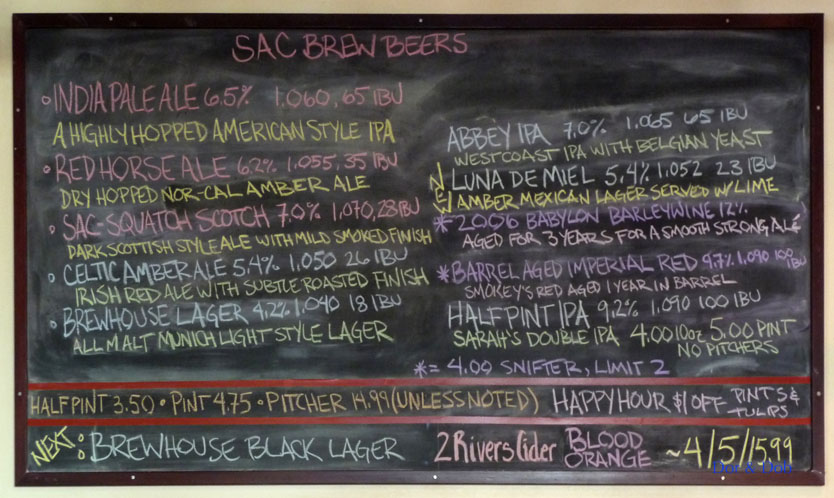 SAC BREW BEERS
INDIA PALE ALE 6.5% 1.060, 65 IBU
A HIGHLY HOPPED AMERICAN STYLE IPA
RED HORSE ALE 6.2% 1.055, 35 IBU
DRY HOPPED NOR-CAL AMBER ALE
SAC-SQUATCH SCOTCH 7.0% 1.070, 28 IBU
DARK SCOTTISH STYLE ALE WITH MILD SMOKED FINISH
CELTIC AMBER ALE 5.4% 1.050 26 IBU
IRISH RED ALE WITH SUBTLE ROASTED FINISH
BREWHOUSE LAGER 4.2% 1.040 18 IBU
ALL MALT MUNICH LIGHT STYLE LAGER
ABBEY IPA 7.0% 1.065 65 IBU
WEST COAST IPA WITH BELGIAN YEAST
NEW LUNA DE MIEL 5.4% 1.052 23 IBU
AMBER MEXICAN LAGER SERVED W/LIME
* 2006 BABYLON BARLEYWINE 12%
AGED FOR 3 YEARS FOR A SMOOTH STRONG ALE
* BARREL AGED IMPERIAL RED 9.7% 1.090 100 IBU
SMOKEY'S RED AGED 1 YEAR IN BARREL
HALF PINT IPA 9.2% 1.090 100 IBU
SARAH'S DOUBLE IPA 4.00 10oz 5.00 PINT
NO PITCHERS
* = 4.00 SNIFTER, LIMIT 2
HALF PINT 3.50 • PINT 4.75 • PITCHER 14.99 (UNLESS NOTED) HAPPY HOUR $1 OFF PINTS & TULIPS
NEXT: BREWHOUSE BLACK LAGER 2 Rivers Cider BLOOD ORANGE ~4/5/15.99